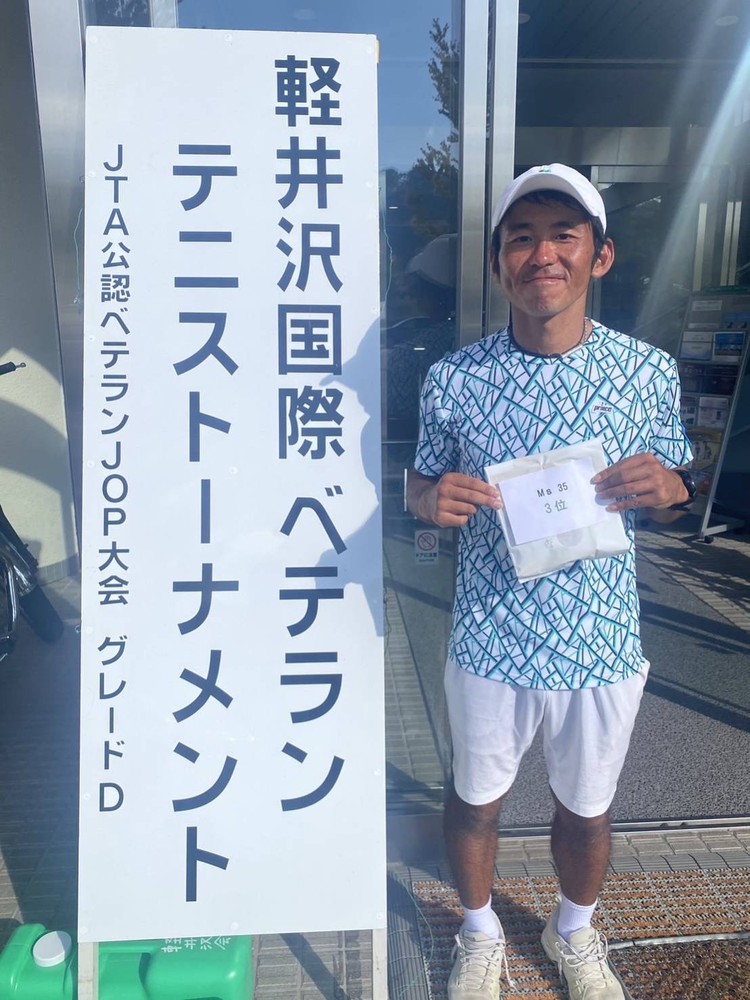 軽井沢国際 ベテラン
テニストーナメント
JTA公認ベテランJOP大会 グレードD
prince
Ms 35
3位